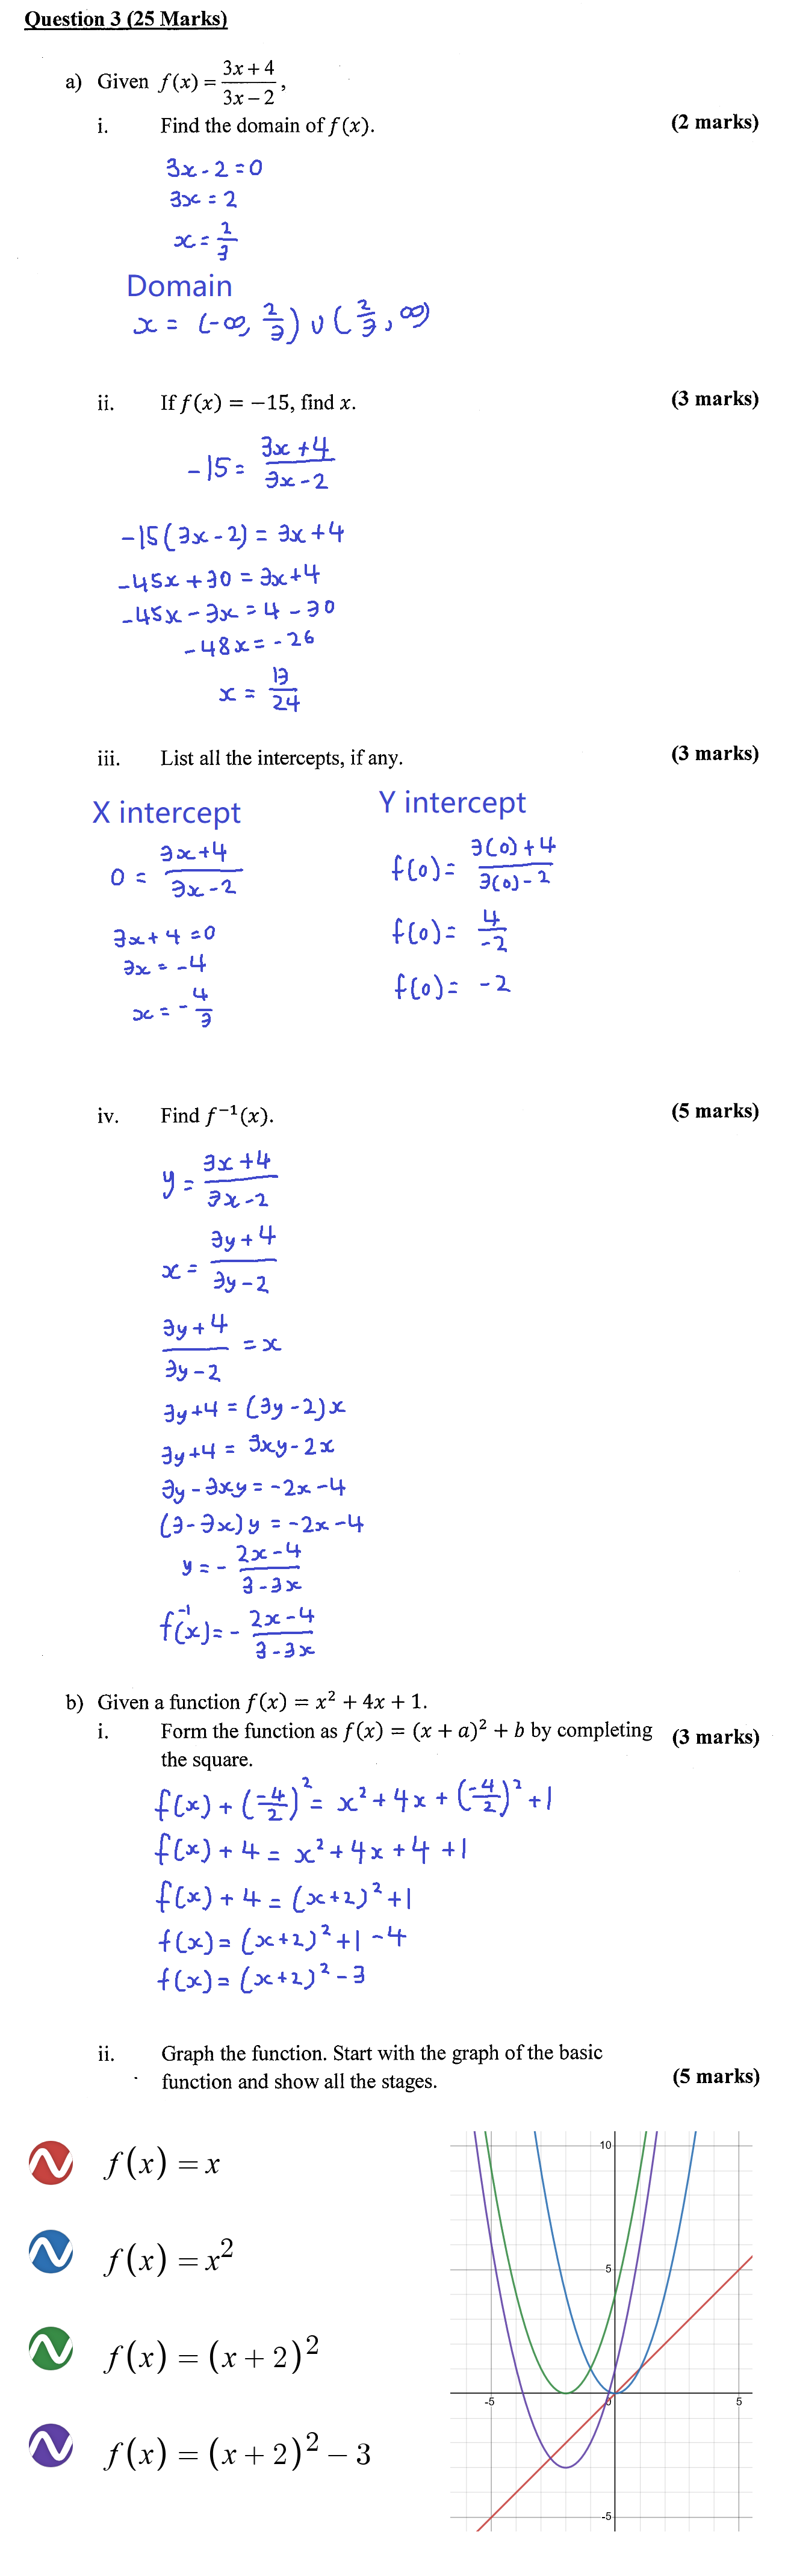 Question 3 (25 Marks)
a) Given f(x) = (3x + 4)/(3x − 2),
i. Find the domain of f(x). (2 marks)
3x - 2 = 0
3x = 2
x = 2/3
Domain
x = (-∞, 2/3) ∪ (2/3, ∞)
ii. If f(x) = −15, find x. (3 marks)
-15 = (3x + 4)/(3x - 2)
-15(3x - 2) = 3x + 4
-45x + 30 = 3x + 4
-45x - 3x = 4 - 30
-48x = -26
x = 13/24
iii. List all the intercepts, if any. (3 marks)
X intercept
0 = (3x + 4)/(3x - 2)
3x + 4 = 0
3x = -4
x = -4/3
Y intercept
f(0) = (3(0) + 4)/(3(0) - 2)
f(0) = 4/-2
f(0) = -2
iv. Find f⁻¹(x). (5 marks)
y = (3x + 4)/(3x - 2)
x = (3y + 4)/(3y - 2)
(3y + 4)/(3y - 2) = x
3y + 4 = (3y - 2)x
3y + 4 = 3xy - 2x
3y - 3xy = -2x - 4
(3 - 3x)y = -2x - 4
y = - (2x - 4)/(3 - 3x)
f⁻¹(x) = - (2x - 4)/(3 - 3x)
b) Given a function f(x) = x² + 4x + 1.
i. Form the function as f(x) = (x + a)² + b by completing (3 marks)
the square.
f(x) + (-4/2)² = x² + 4x + (-4/2)² + 1
f(x) + 4 = x² + 4x + 4 + 1
f(x) + 4 = (x+2)² + 1
f(x) = (x+2)² + 1 - 4
f(x) = (x+2)² - 3
ii. Graph the function. Start with the graph of the basic
function and show all the stages. (5 marks)
f(x) = x
f(x) = x²
f(x) = (x + 2)²
f(x) = (x + 2)² − 3
10
5
-5
0
5
-5